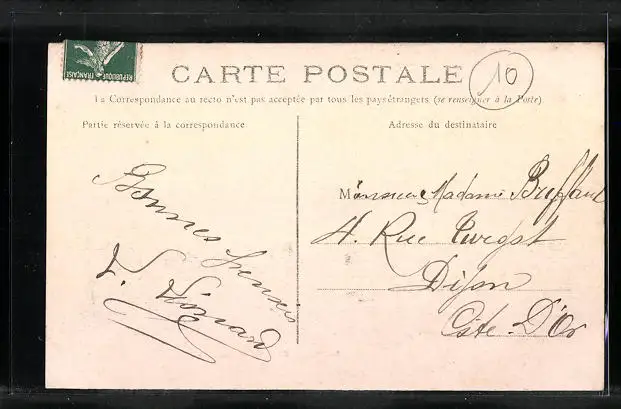 REPUBLIQUE FRANÇAISE
CARTE POSTALE
10
La Correspondance au recto n'est pas acceptée par tous les pays étrangers (se renseigner à la Poste)
Partie réservée à la correspondance
Adresse du destinataire
Bonnes
Monsieur Madame Buffaut
4. Rue Turgot
Dijon
Côte-D'Or